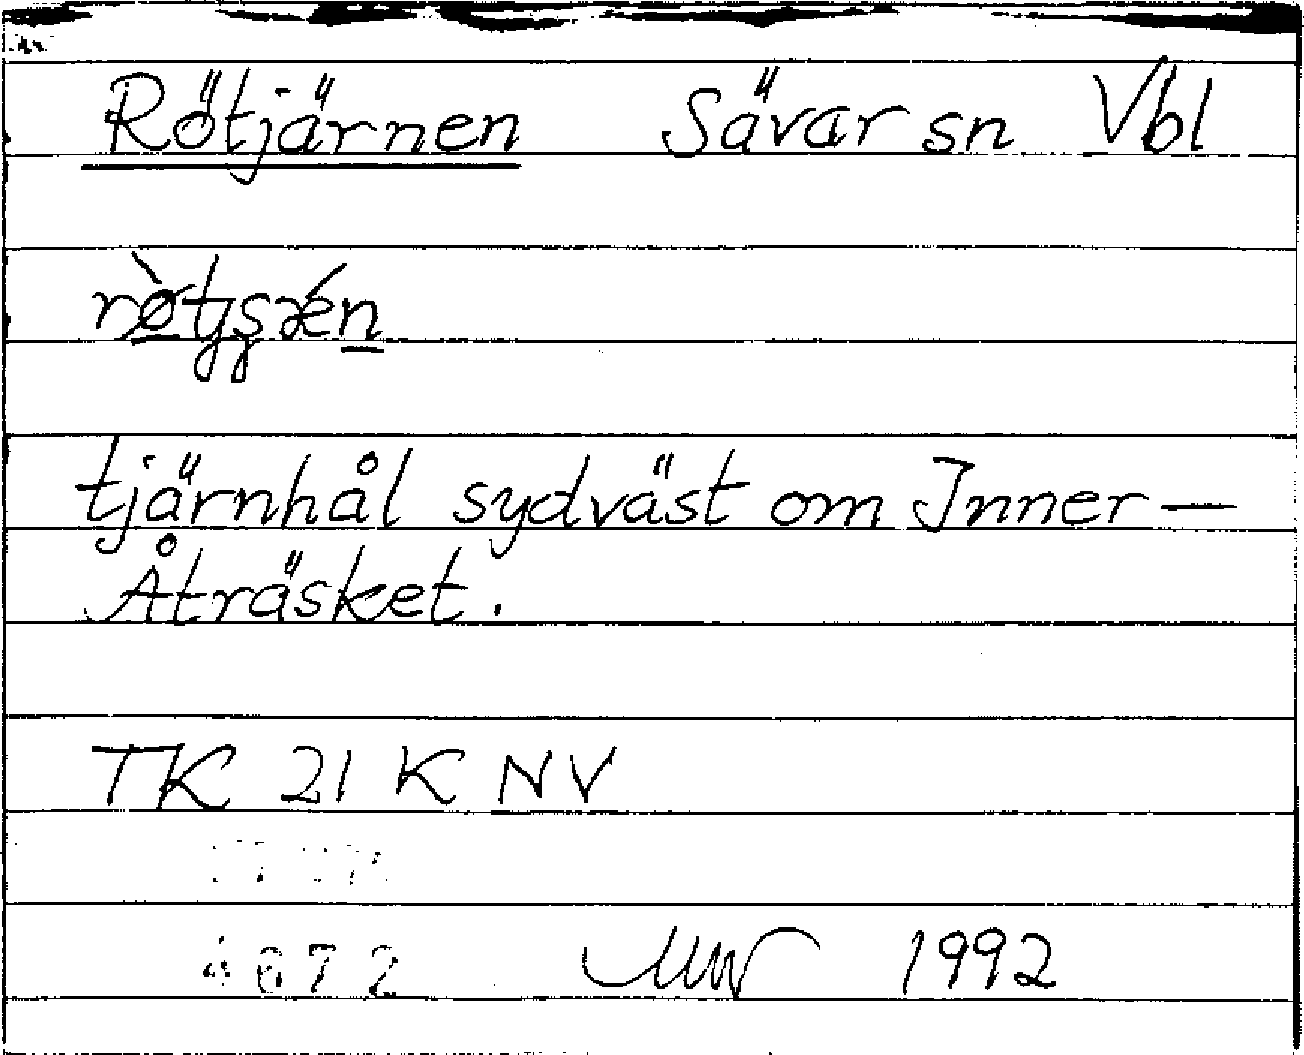 Rötjärnen Sävar sn Vbl
tjärnhål sydväst om Inner-
Åträsket.
TK 21 K NV
1992